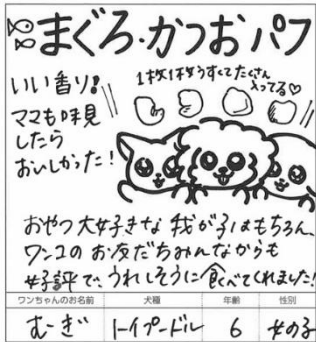 まぐろ・かつおパフ
いい香り!
ママも味見
したら
おいしかった!
1枚1枚うすくてたくさん
入ってる♡
おやつ大好きな我が子はもちろん、
ワンコのお友だちみんなからも
好評で、うれしそうに食べてくれました!
ワンちゃんのお名前 犬種 年齢 性別
むぎ トイプードル 6 女の子